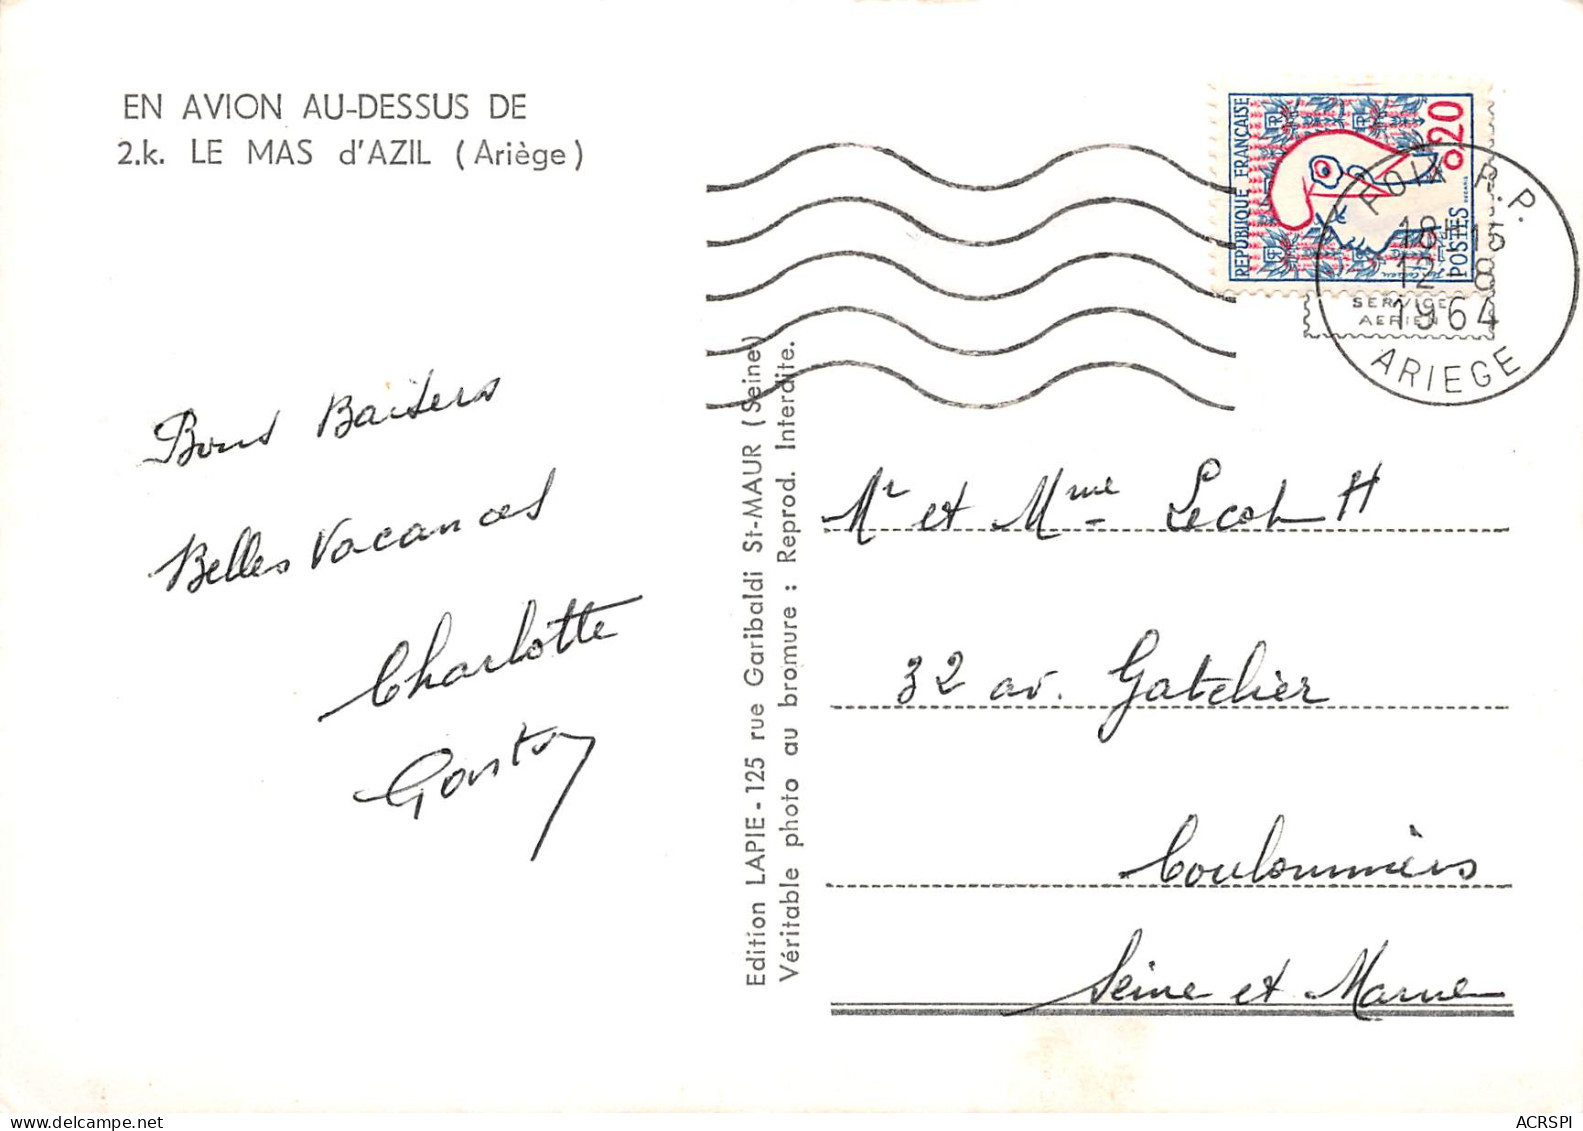 EN AVION AU-DESSUS DE
2.k. LE MAS d'AZIL (Ariège)
Bons Baisers
Belles Vacances
Charlotte
Gaston
Edition LAPIE - 125 rue Garibaldi St-MAUR (Seine)
Véritable photo au bromure : Reprod. Interdite.
REPUBLIQUE FRANÇAISE
0,20
POSTES
FOIX R.P.
18H15
12-8
1964
ARIEGE
SERVICE
AERIEN
Mr et Mme
32 av. Gatelier
Coulommiers
Seine et Marne
ACRSPI